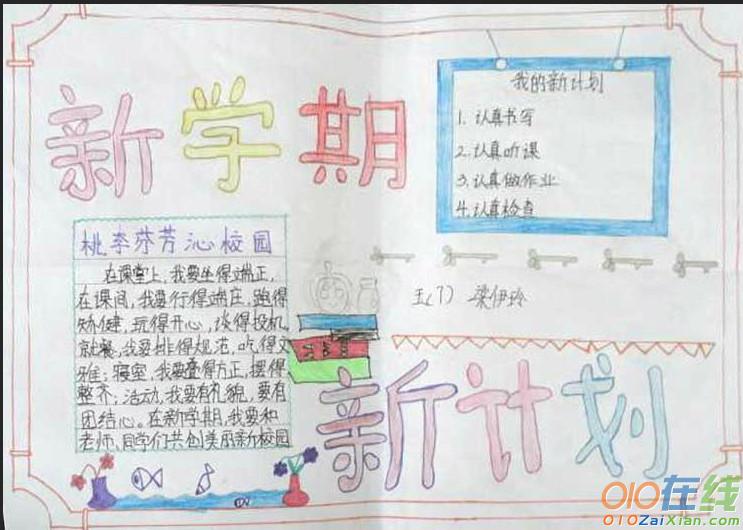 新学期
我的新计划
1. 认真书写
2. 认真听课
3. 认真做作业
4. 认真检查
桃李芬芳沁校园
在课堂上,我要坐得端正,
在课间,我要行得端庄,跑得
矫健,玩得开心,谈得投机,
就餐,我要排得规范,吃得文
雅;寝室,我要叠得方正,摆得
整齐;活动,我要有礼貌,要有
团结心。在新学期,我要和
老师、同学们共创美丽新校园
五(7) 梁伊玲
新计划
010在线
010ZaiXian.com